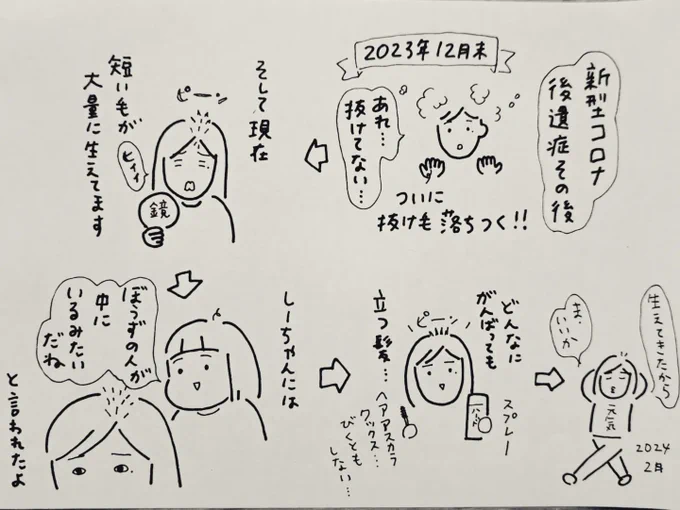 新型コロナ
後遺症その後
2023年12月末
あれ…
抜けてない…
ついに
抜け毛落ちつく!!
そして現在
ピーン
短い毛が
大量に生えてます
ヒィィ
鏡
しーちゃんには
ぼうずの人が
中に
いるみたい
だね
と言われたよ
どんなに
がんばっても
立つ髪…
ピーン
スプレー
ハード
ヘアマスカラ
ワックス…
びくとも
しない…
生えてきたから
ま、
いいか
元気
2024
2月